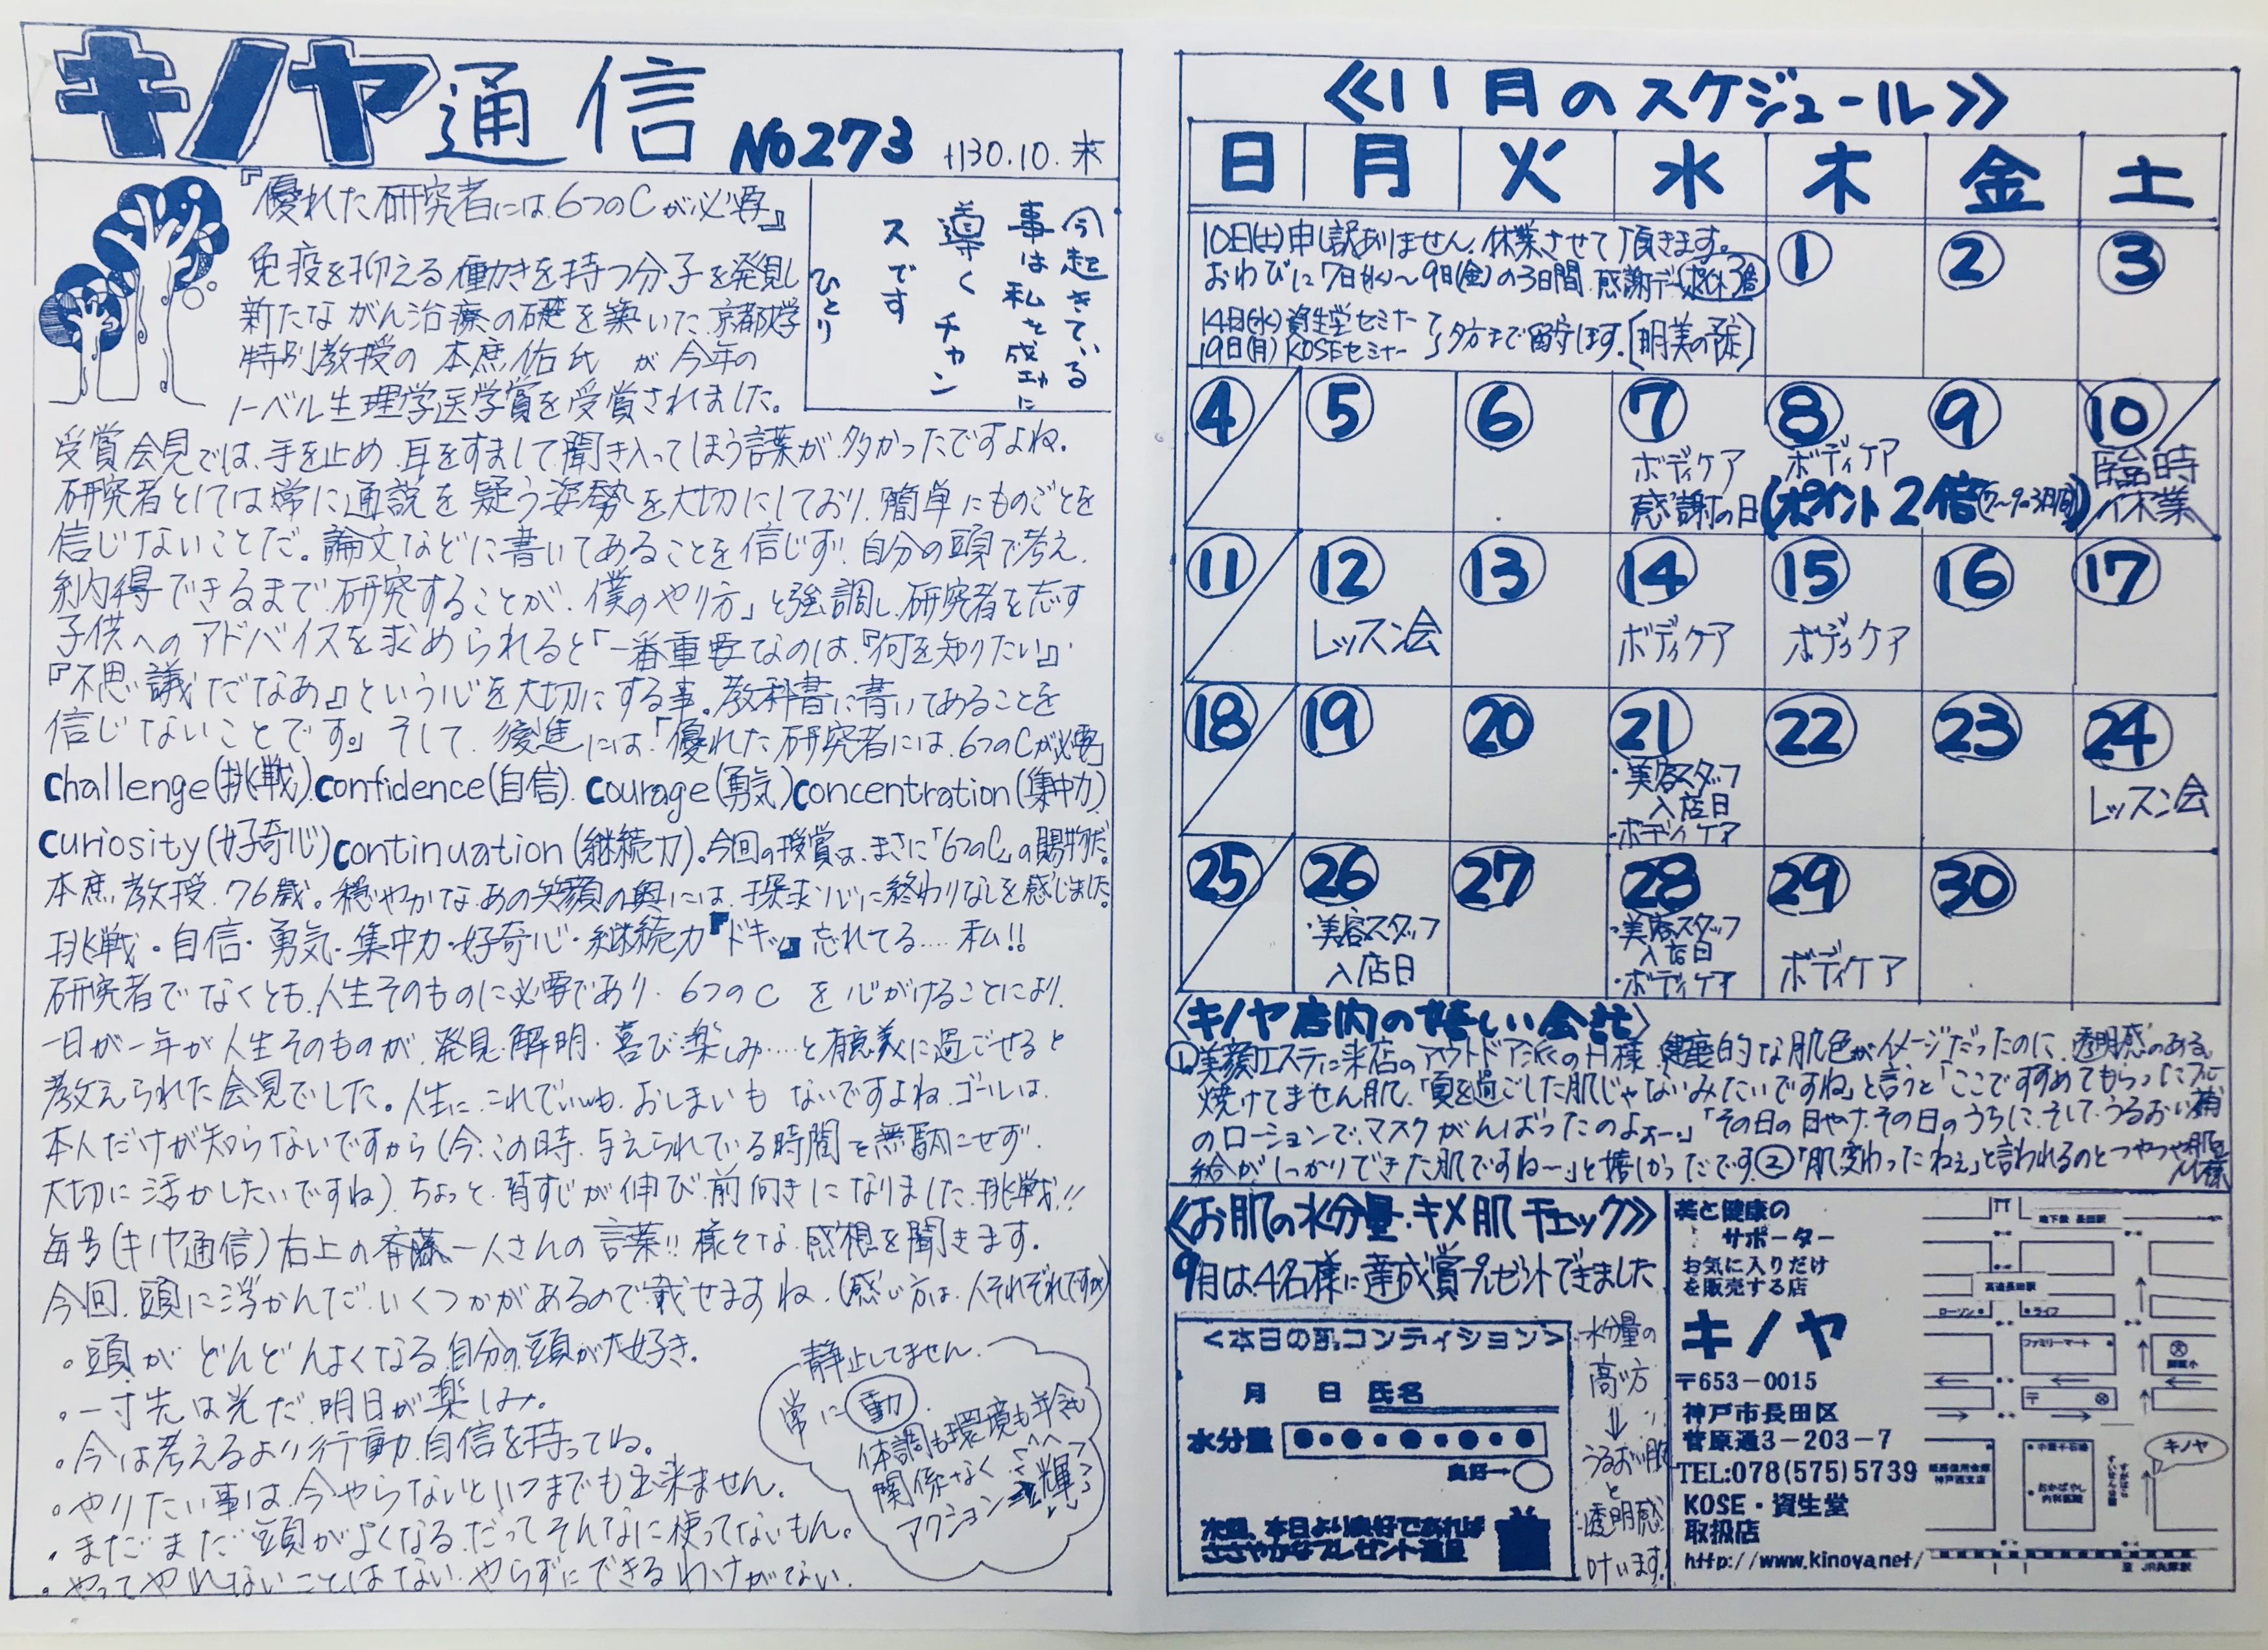 キノヤ通信 No273 H30.10.末
『優れた研究者には6つのCが必要』
今起きている
事は私を成功に
導くチャン
スです
ひとり
免疫を抑える働きを持つ分子を発見し
新たながん治療の礎を築いた京都大学
特別教授の 本庶佑氏 が今年の
ノーベル生理学医学賞を受賞されました。
受賞会見では、手を止め 耳をすまして聞き入ってしまう言葉が多かったですよね。
研究者としては常に通説を疑う姿勢を大切にしており、簡単にものごとを
信じないことだ。論文などに書いてあることを信じず、自分の頭で考え、
納得できるまで研究することが、僕のやり方」と強調し、研究者を志す
子供へのアドバイスを求められると「一番重要なのは、『何を知りたい』
『不思議だなあ』という心を大切にする事。教科書に書いてあることを
信じないことです。」そして、後進には、「優れた研究者には、6つのCが必要」
challenge(挑戦).confidence(自信).courage(勇気)concentration(集中力)
curiosity(好奇心)continuation(継続力)。今回の授賞は、まさに「6つのC」の賜物だ。
本庶教授.76歳。穏やかなあの笑顔の奥には、探求心に終わりなしを感じました。
挑戦・自信・勇気・集中力・好奇心・継続力『ドキッ』忘れてる.... 私!!
研究者でなくとも、人生そのものに必要であり、6つのC を心がけることにより、
一日が一年が人生そのものが、発見・解明・喜び楽しみ....と有意義に過ごせると
教えられた会見でした。人生に、これでいいも、おしまいも ないですよね。ゴールは、
本人だけが知らないですから(今、この時、与えられている時間を無駄にせず、
大切に活かしたいですね)ちょっと、背すじが伸び、前向きになりました。挑戦!!
毎号(キノヤ通信)右上の斉藤一人さんの言葉!! 様々な感想を聞きます。
今回、頭に浮かんだいくつかがあるので載せますね。(感じ方は、人それぞれですが)
。頭がどんどんよくなる.自分の頭が大好き。
。一寸先は光だ.明日が楽しみ。
。今は考えるより行動.自信を持ってね。
。やりたい事は、今やらないといつまでも出来ません。
。まだまだ頭がよくなる。だってそんなに使ってないもん。
。やってやれないことはない.やらずにできるわけがない.
静止してません.
常に動
体調も環境も年令も
関係なく
アクション 輝
≪11月のスケジュール≫
日 月 火 水 木 金 土
10日(土)申し訳ありません.休業させて頂きます。
おわびに7日(水)～9日(金)の3日間.感謝デー
14日(水)資生堂セミナー
19日(月)KOSEセミナー 夕方まで留守します。〔明美の予定〕
① ② ③
④ ⑤ ⑥ ⑦ ⑧ ⑨ ⑩
ボディケア ボディケア 臨時
感謝の日(ポイント2倍(7～9の3日間)) 休業
⑪ ⑫ ⑬ ⑭ ⑮ ⑯ ⑰
レッスン会 ボディケア ボディケア
⑱ ⑲ ⑳ ㉑ ㉒ ㉓ ㉔
・美容スタッフ
入店日
・ボディケア
レッスン会
㉕ ㉖ ㉗ ㉘ ㉙ ㉚
・美容スタッフ
入店日
・美容スタッフ
入店日
・ボディケア
ボディケア
〈キノヤ店内の嬉しい会話〉
①美顔エステに来店のアウトドア派のH様.健康的な肌色がイメージだったのに、透明感のある
焼けてません肌。「夏を過ごした肌じゃないみたいですね」と言うと「ここですすめてもらった
のローションで、マスクがんばったのよぉー。」「その日の日やけ、その日のうちに、そして、うるおい補
給がしっかりできた肌ですね～」と嬉しかったです。②「肌変わったねぇ」と言われるのとつやつや肌
≪お肌の水分量.キメ肌チェック≫
9月は4名様に達成賞プレゼントできました
<本日の肌コンディション>
月 日 氏名
水分量
良好→
次回、本日より良好であれば
ささやかなプレゼント進呈
水分量の
高い方
⇓
うるおい肌
と
透明感
叶います!
美と健康の
サポーター
お気に入りだけ
を販売する店
キノヤ
〒653-0015
神戸市長田区
菅原通3-203-7
TEL:078(575)5739
KOSE・資生堂
取扱店
http://www.kinoya.net/
地下鉄 長田駅
高速長田駅
ローソン ライフ
ファミリーマート
〒
おかばやし
内科医院
キノヤ
至 JR兵庫駅